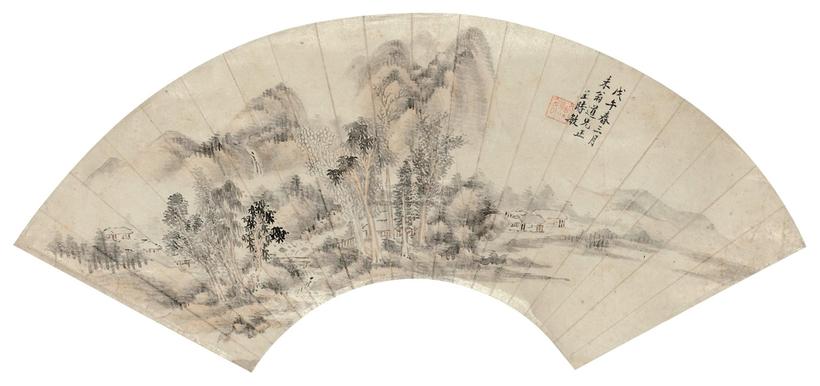 戊午春三月
耒翁道兄正
王時敏